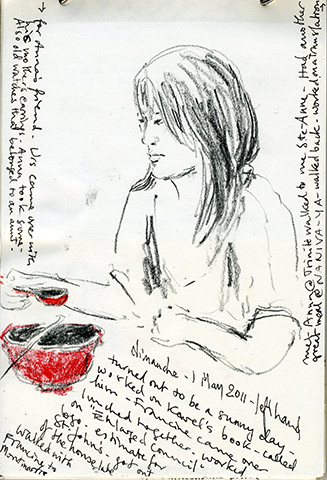 met Anna @ Trinite walked to rue Ste-Anne - Had another
great meal @ NANIVA-YA - walked back - worked on a translation
→ for Anna's friend. Liis came over with
her mother's earrings - Anna took some -
Also old watches that belonged to an aunt -
dimanche - 1 May 2011 - left hand
turned out to be a sunny day -
worked on Karel's book - called
him - Francine came over
lunched together. worked
on Enlarged Council
logo, estimate for
St John's. got out
of the house late
walked with
Francine to
Montmartre